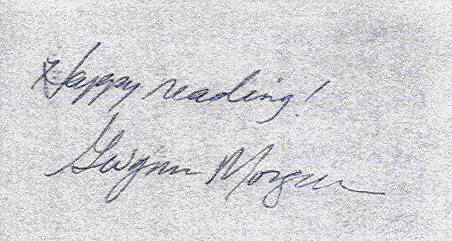 Happy reading!
Gwynn Morgan